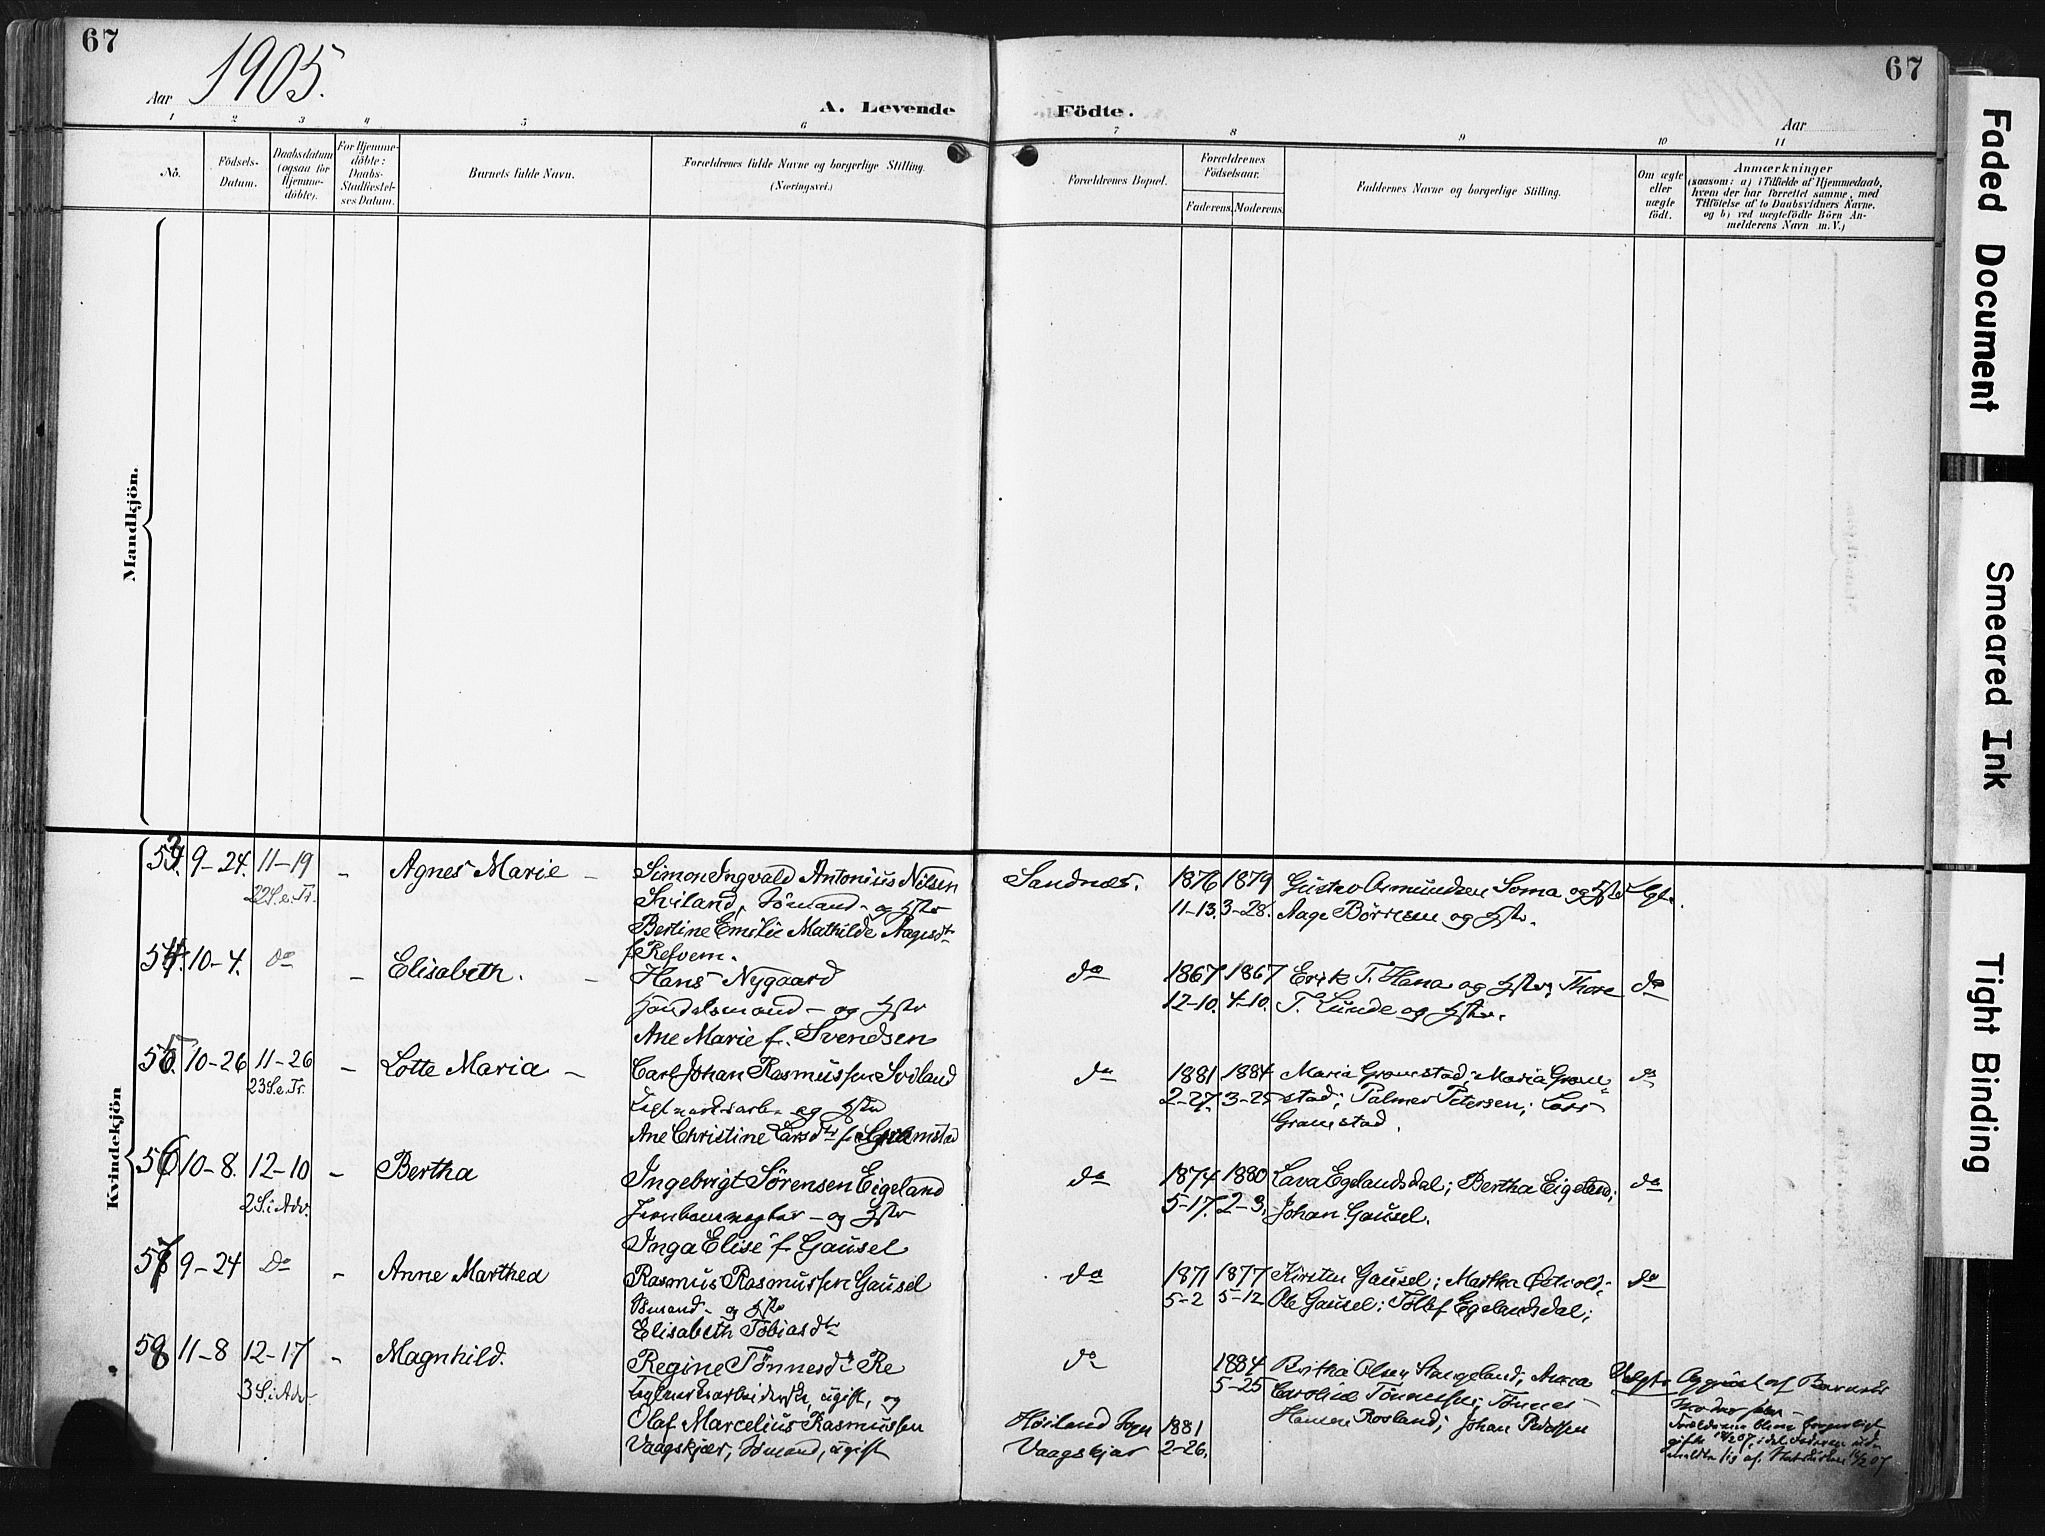 67
1905.
Aar
A. Levende Födte.
67
Aar
1 2 3 4 5 6 7 8 9 10 11
No.
Födsels-
Datum.
Daabsdatum
(ogsaa for
Hjemme-
döbte).
For Hjemme-
döbte:
Daabs-
Stadfæstel-
ses Datum.
Barnets fulde Navn.
Forældrenes fulde Navne og borgerlige Stilling.
(Næringsvei.)
Forældrenes Bopæl.
Forældrenes
Födselsaar.
Faderens. Moderens.
Faddernes Navne og borgerlige Stilling.
Om ægte
eller
uægte
födt.
Anmærkninger
(saasom: a) i Tilfælde af Hjemmedaab,
hvem der har forrettet samme, med
Tilföielse af to Daabsvidners Navne.
og b) ved uægtefödte Börn An-
melderens Navn m.V.)
Mandkjön.
Kvindekjön
53. 9-24. 11-19 - Agnes Marie -
22 S. e. Tr.
Simon Ingvald Antonius Nilsen
Sviland, Sømand - og Hstr
Bertine Emilie Mathilde Aagesdtr
f. Refvem.
Sandnes.
1876 1879
11-13. 3-28.
Gustav Asmundsen Soma og Hstr
Aage Börresen og Hstr.
Ægt.
54. 10-4. do - Elisabeth. -
Hans Nygaard
Handelsmand - og Hstr
Ane Marie f. Svendsen
do
1867 1867
12-10. 4-10.
Erik T. Hana og Hstr; Thore
T. Lunde og Hstr.
do
55. 10-26 11-26 - Lotte Maria -
23 S. e. Tr.
Carl Johan Rasmussen Sviland
og Hstr
Ane Christine Larsdtr f. Gramstad
do
1881 1884
2-27. 3-25
Maria Gramstad; Maria Gram-
stad; Palmer Petersen; Lars
Gramstad.
do
56 10-8. 12-10 - Bertha
2 S. i Adv.
Ingebrigt Sørensen Eigeland
Jernbanevogter - og Hstr
Inga Elise f. Gausel
do
1874 1880
5-17. 2-3.
Lava Egelandsdal; Bertha Eigeland;
Johan Gausel.
do
57 9-24 do - Anne Marthea
Rasmus Rasmussen Gausel
Sømand - og Hstr
Elisabeth Tobiasdtr
do
1871 1877
5-2 5-12
Kirsten Gausel; Martha
Ole Gausel; Tollef Egelandsdal;
do
58 11-8 12-17 - Magnhild.
3 S. i Adv-
Regine Tønnesdtr Re
ugift, og
Olaf Marcelius Rasmussen
Vaagskjær, Sømand, ugift
do
Höiland Sogn
Vaagskjær
1884
5-25
1881
2-26.
Olsen Stangeland; Anna
Caroline Tönnessen; Tönnes
Hansen Rosland; Johan Pedersen
Uægte
Opgivet af Barnets
Moder
Forældrene bleve borgerligt
gifte
Faded Document
Smeared Ink
Tight Binding